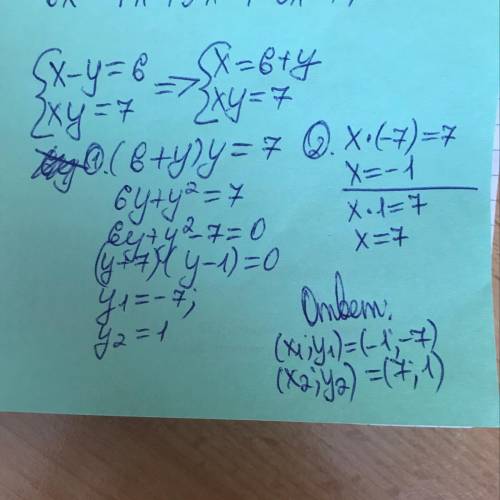 {x-y=6 => {x=6+y
{xy=7 {xy=7
①. (6+y)y=7
6y+y²=7
6y+y²-7=0
(y+7)(y-1)=0
y₁=-7;
y₂=1
②. x·(-7)=7
x=-1
x·1=7
x=7
Ответ:
(x₁;y₁)=(-1;-7)
(x₂;y₂)=(7;1)